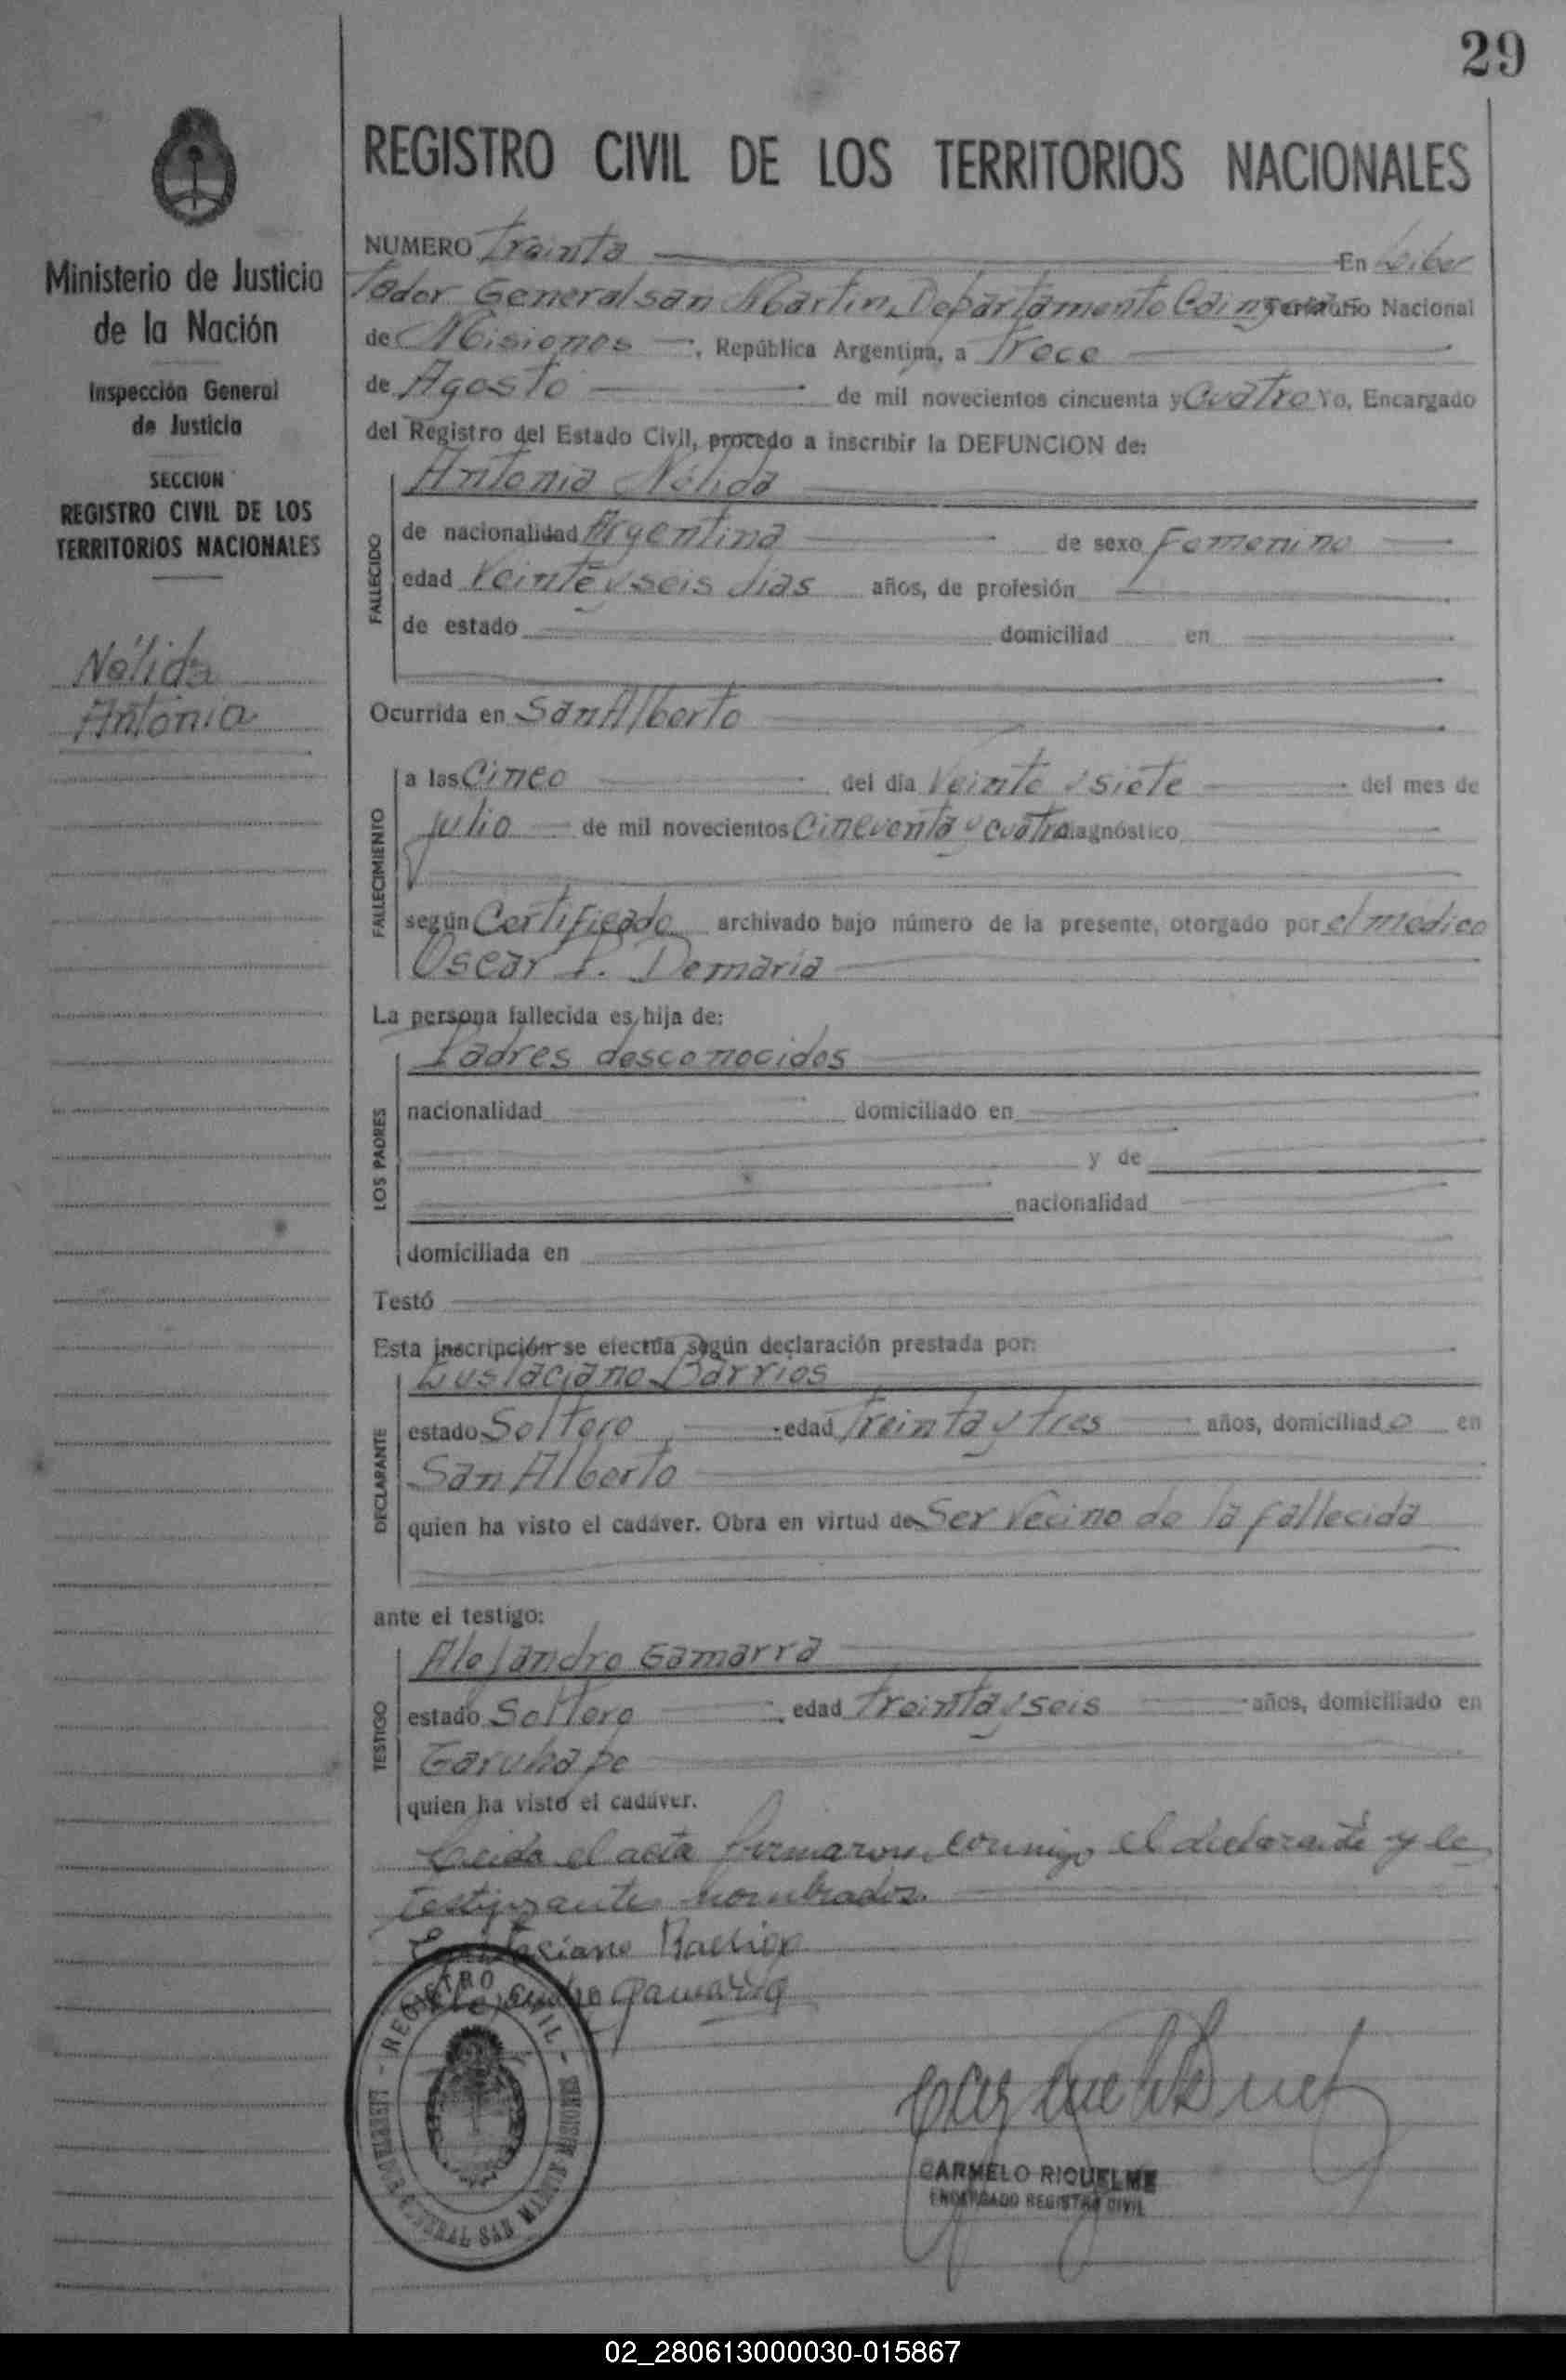 29
REGISTRO CIVIL DE LOS TERRITORIOS NACIONALES
Ministerio de Justicia
de la Nación
Inspección General
de Justicia
SECCION
REGISTRO CIVIL DE LOS
TERRITORIOS NACIONALES
Nélida
Antonia
NUMERO Treinta En Liber
tador General san Martin, Departamento Territorio Nacional
de Misiones, República Argentina, a Trece
de Agosto de mil novecientos cincuenta y Cuatro Yo, Encargado
del Registro del Estado Civil, procedo a inscribir la DEFUNCION de:
Antonia Nélida
FALLECIDO
de nacionalidad Argentina de sexo Femenino
edad Veinte y seis dias años, de profesión
de estado domiciliad en
Ocurrida en San Alberto
FALLECIMIENTO
a las Cinco del día Veinte y siete del mes de
julio de mil novecientos Cincuenta y cuatro diagnóstico
según Certificado archivado bajo número de la presente, otorgado por el medico
Oscar P. Demaria
La persona fallecida es hija de:
Padres desconocidos
LOS PADRES
nacionalidad domiciliado en
y de
nacionalidad
domiciliada en
Testó
Esta inscripción se efectúa según declaración prestada por:
Eustaciano Barrios
DECLARANTE
estado Soltero edad Treinta y tres años, domiciliado en
San Alberto
quien ha visto el cadáver. Obra en virtud de Ser Vecino de la fallecida
ante el testigo:
Alejandro Gamarra
TESTIGO
estado Soltero edad Treinta y seis años, domiciliado en
Garuhape
quien ha visto el cadáver.
Leida el acta firmaron conmigo el declarante y le
testigo nombrados.
Eustaciano Barrios
Alejandro Gamarra
REGISTRO CIVIL - MISIONES
LIBERTADOR GENERAL SAN MARTIN
CARMELO RIQUELME
ENCARGADO REGISTRO CIVIL
02_280613000030-015867